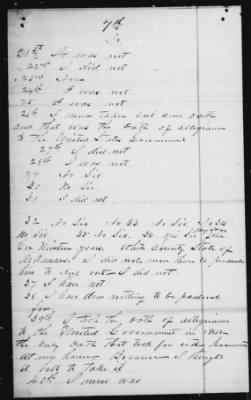 7th
21st It was not
22nd I did not
23rd None
24th I was not
25 I was not
26 I never taken but one oath
and that was the oath of allegiance
to the United States Government
27th I did not
28th I was not
29 No Sir
30 No Sir
31 I did not
32 No Sir No 33 No Sir No 34
No Sir 35 No Sir 36 yes Sir
Six Ninteen years. County State of
Arkansas. I did not him to
him to I did not
37 I have not
38 I have done nothing to be pardoned
for
39th I took the oath of allegiance
to the United Government in
the only oath that took for either Government
at my home Because I thought
it best to take it
40th I never was